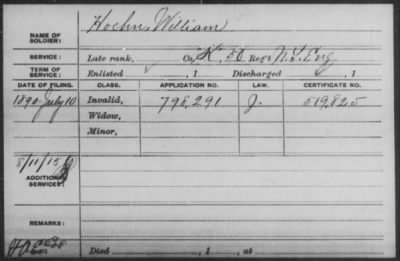 Hoehn, William
NAME OF
SOLDIER:
SERVICE: Late rank, Co. K, 50 Reg't N.Y. Eng
TERM OF
SERVICE: Enlisted , 1 Discharged , 1
DATE OF FILING. CLASS. APPLICATION NO. LAW. CERTIFICATE NO.
1890 July 10 Invalid, 798,291 J. 519,825
Widow,
Minor,
8/11/15
ADDITIONAL
SERVICES:
REMARKS:
Died , 1 , at